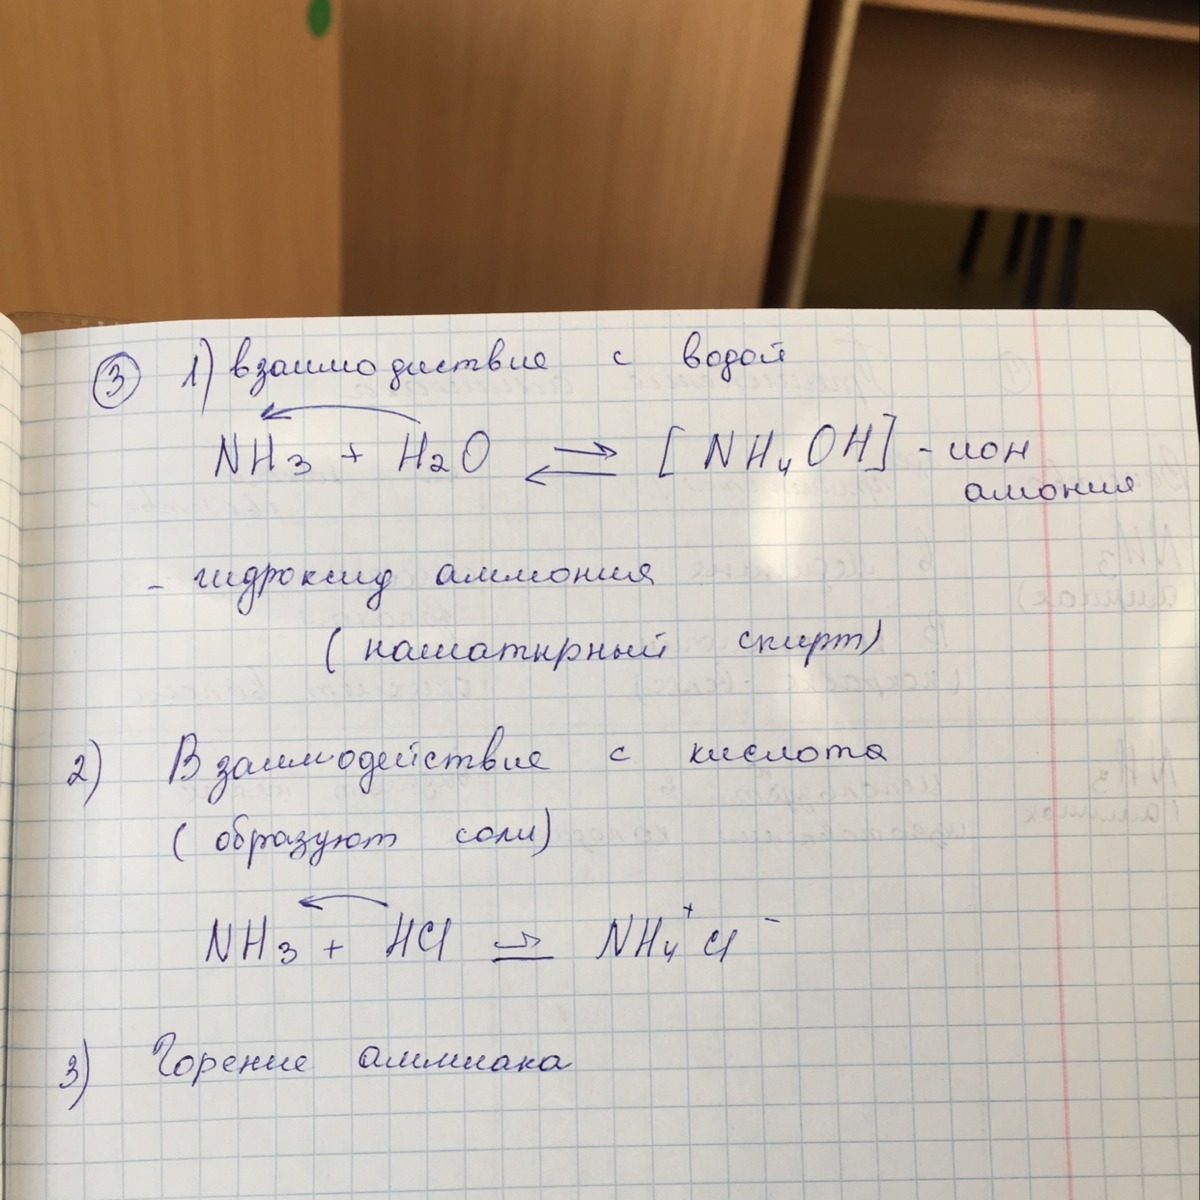 ③ 1) взаимодиствие с водой
NH3 + H2O ⇌ [NH4OH] - ион
амония
- гидроксид аммония
(нашатырный спирт)
2) Взаимодействие с кислота
(образуют соли)
NH3 + HCl ⇌ NH4⁺Cl⁻
3) Горение аммиака